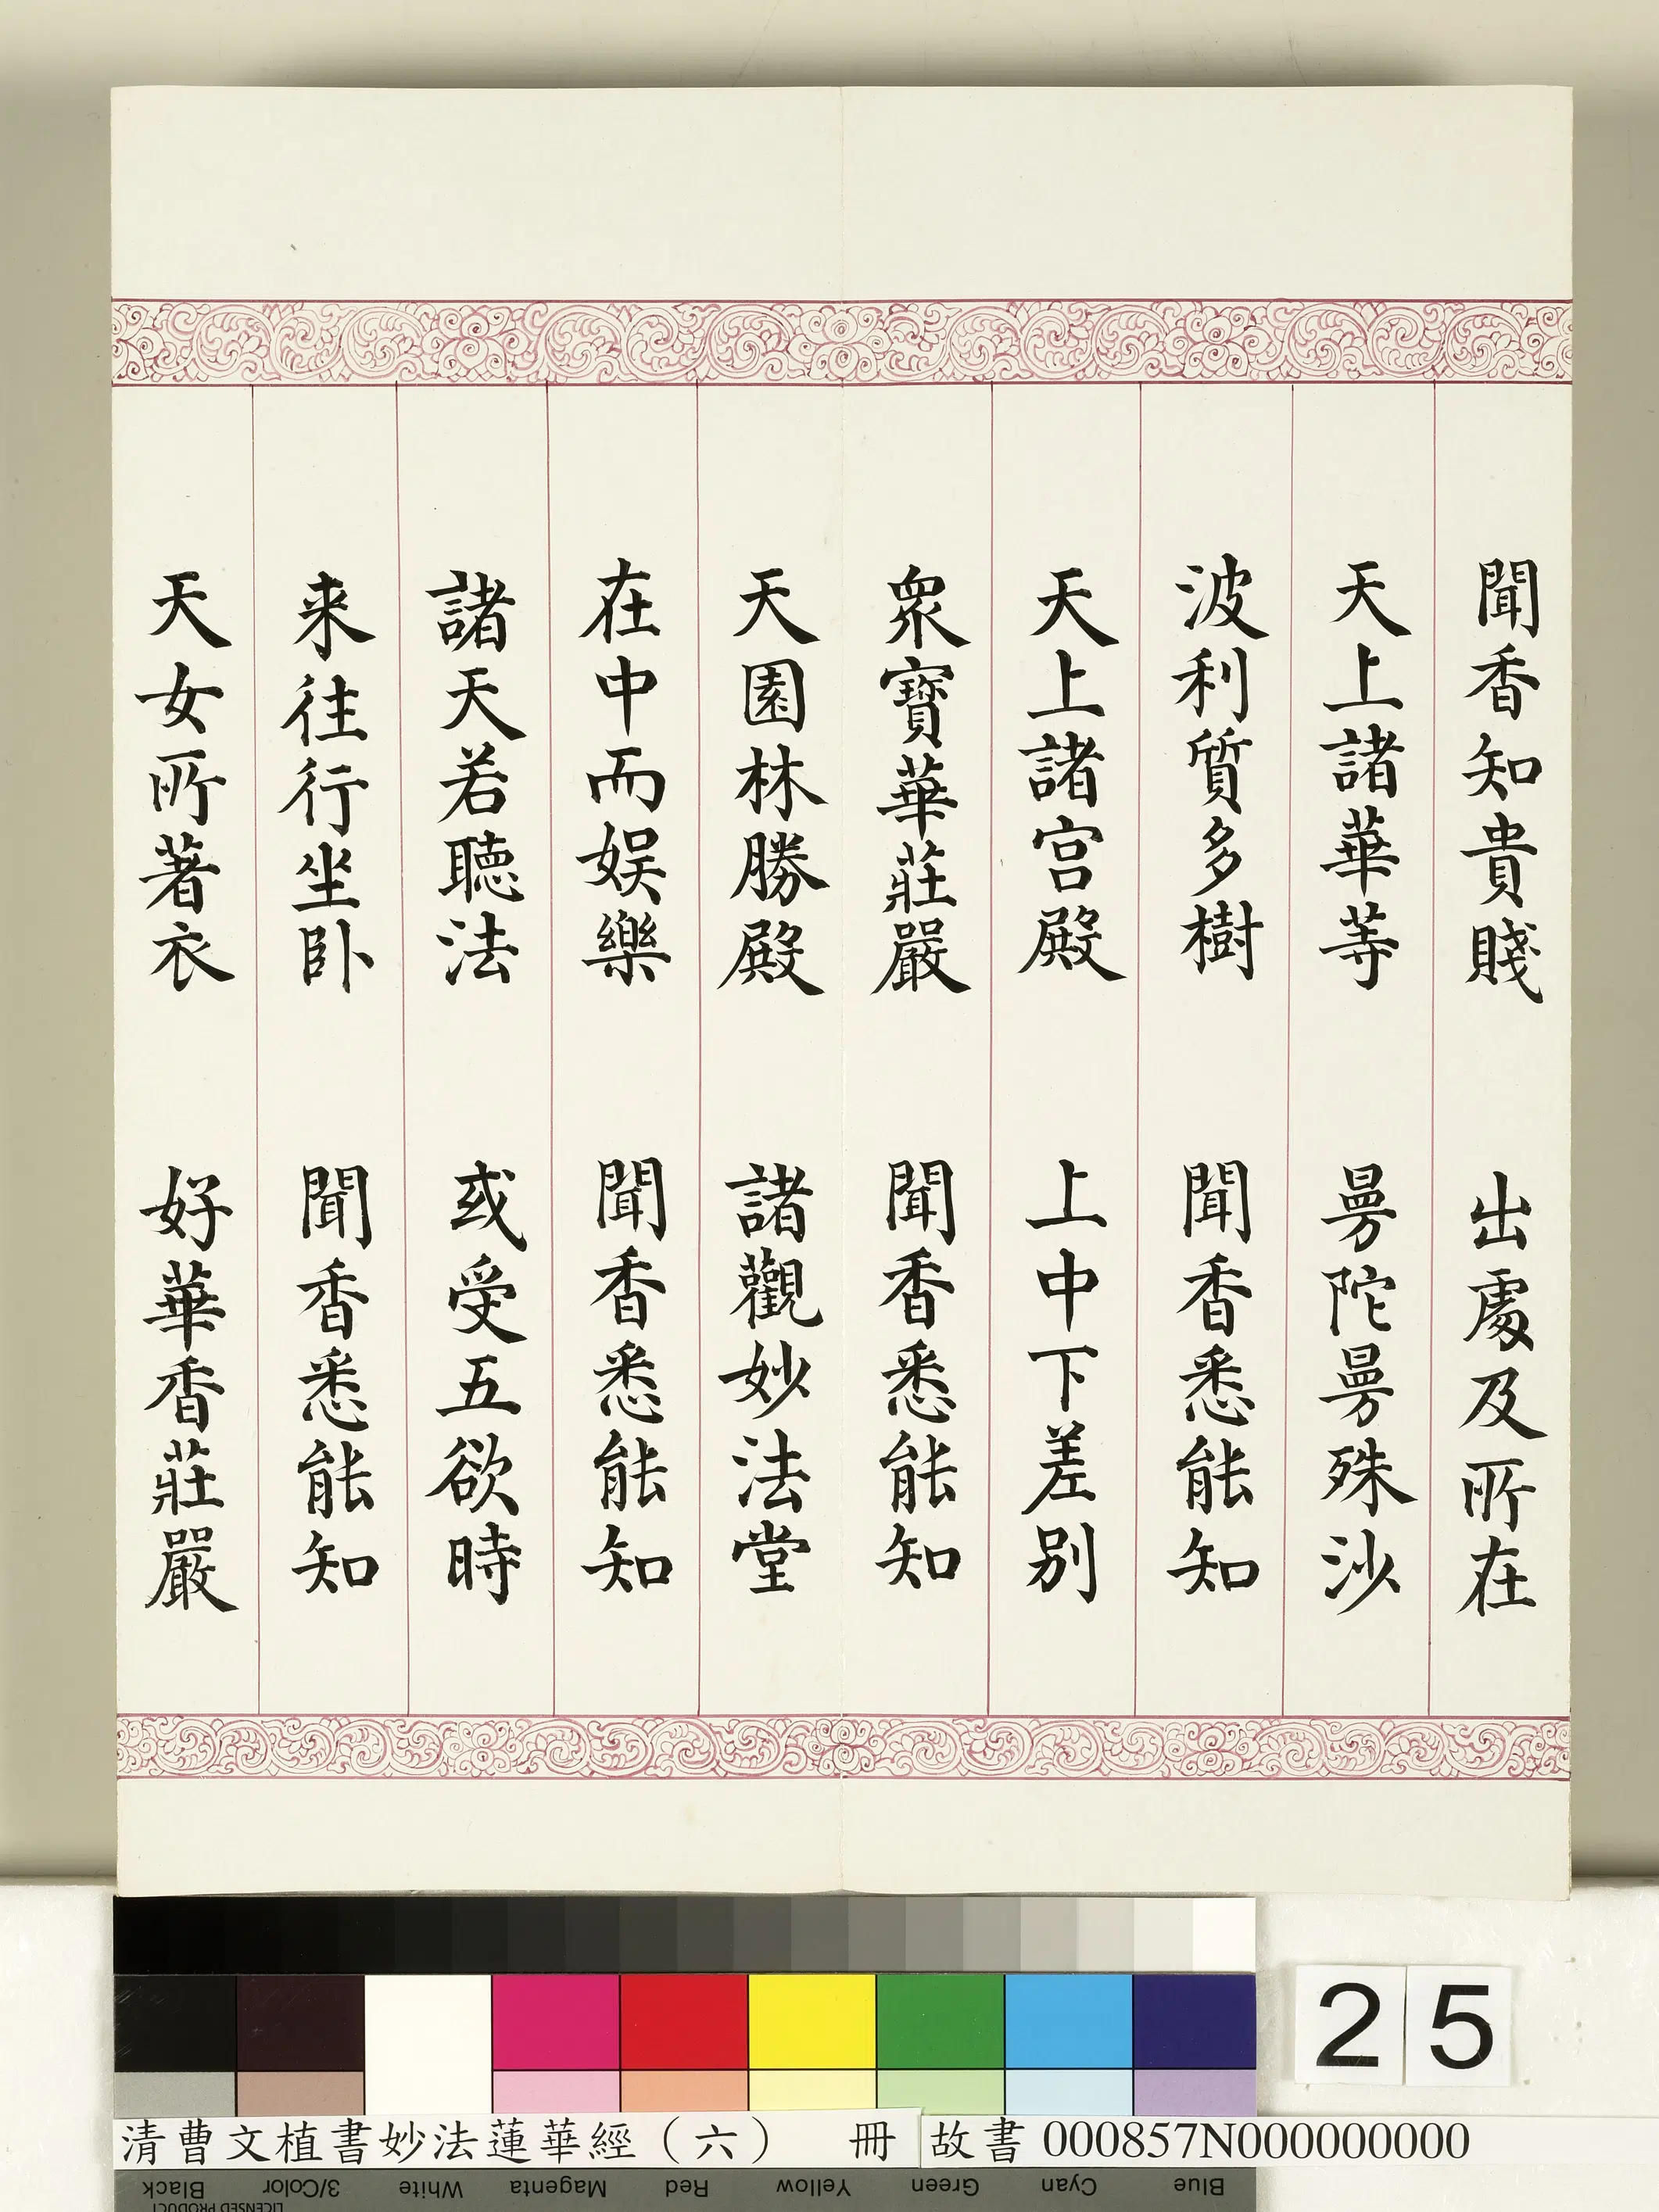 聞香知貴賤　出處及所在
天上諸華等　曼陀曼殊沙
波利質多樹　聞香悉能知
天上諸宮殿　上中下差別
眾寶華莊嚴　聞香悉能知
天園林勝殿　諸觀妙法堂
在中而娛樂　聞香悉能知
諸天若聽法　或受五欲時
来往行坐卧　聞香悉能知
天女所著衣　好華香莊嚴
25
清曹文植書妙法蓮華經（六）　冊　故書000857N000000000
Black 3/Color White Magenta Red Yellow Green Cyan Blue
LICENSED PRODUCT